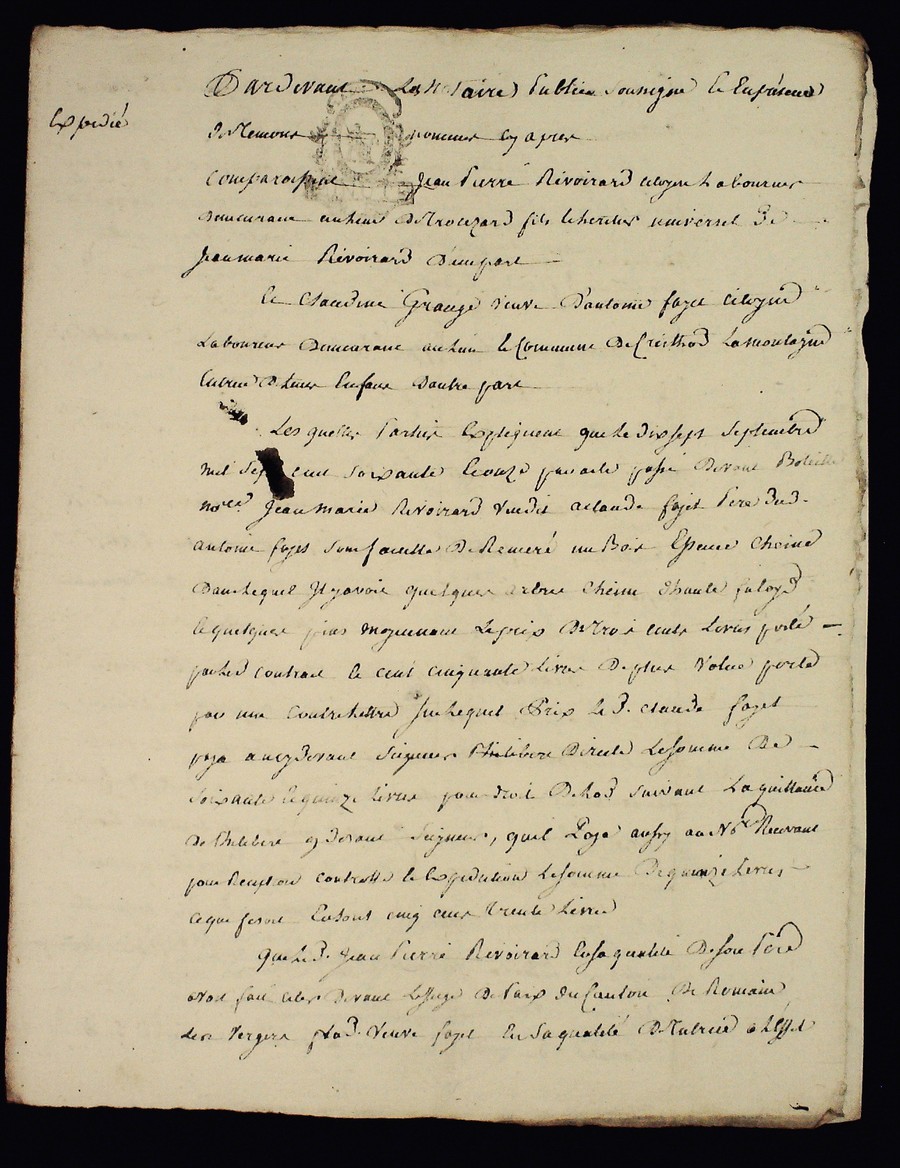 Expedié
Pardevant Le Notaire Public Soussigné et En présence
Des temoins nommes cy apres
Comparoissent Jean Pierre Révoirard citoyen Laboureur
Demeurant au lieu De fils et heritier universel De
Jean marie Révoirard D'une part
Et Claudine Grange veuve D'antoine fayet citoyen
Laboureur Demeurant au lieu et Commune De La montagne
tutrice De leurs Enfans D'autre part
Lesquelles Parties Expliquent que Le Dix sept Septembre
mil sept cent soixante et onze par acte passé Devant
no.re Jean Marie Révoirard vendit a claude fayet Pere Dud.
antoine fayet sous faculté De Remeré un Bois Essence Chêne
Dans Lequel Il y avoit quelques arbres Chêne Et haute futaye
et quelques pins moyennant Le prix De trois cents Livres porté
par led contrat et cent cinquante Livres De plus value porté
par une Contre Lettre sur Lequel Prix Le D. Claude fayet
paya au cy Devant Seigneur La somme De
soixante et quinze Livres pour droit De Lods suivant La quittance
De cy Devant Seigneur, qu'il Paya aussy au No.re Recevant
pour Reception Controlle et Expedition La somme De quinze Livres
ce que feroit En tout cinq cent trente Livres
Que Le D. Jean Pierre Révoirard En sa qualité De son Père
avoit fait citer Devant Le Juge De Paix Du Canton De Romain
Les Vergers Lad. veuve fayet En sa qualité De tutrice a L'effet